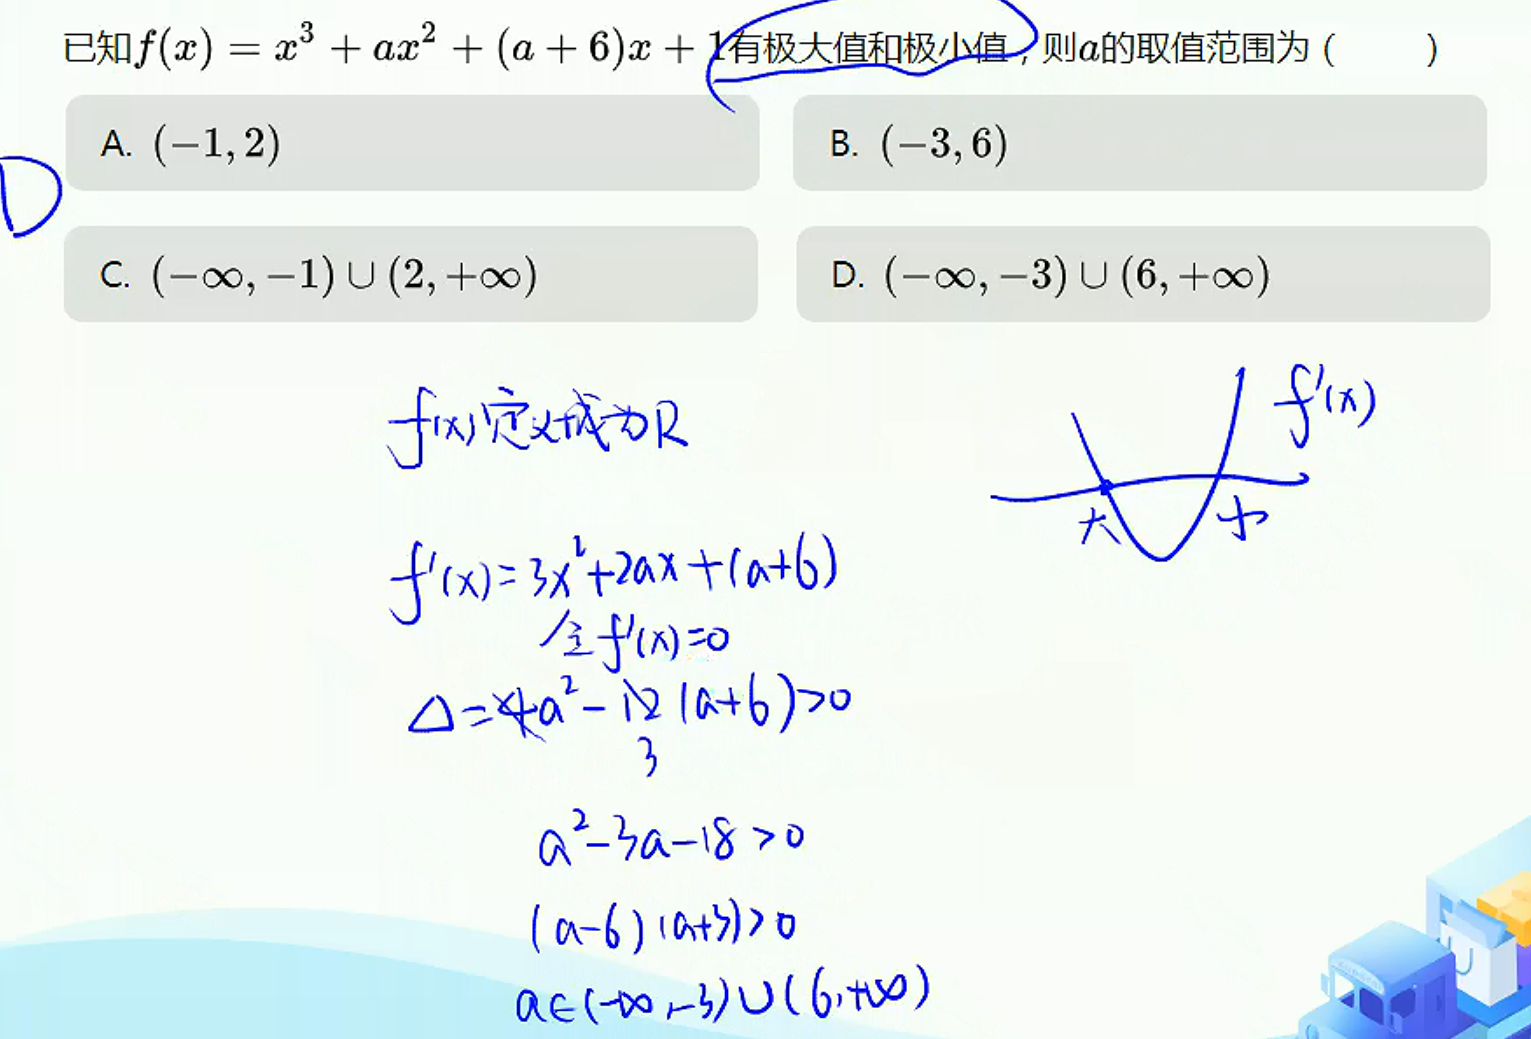 已知f(x) = x³ + ax² + (a + 6)x + 1有极大值和极小值，则a的取值范围为 (    )
A. (−1, 2)
B. (−3, 6)
D
C. (−∞, −1) ∪ (2, +∞)
D. (−∞, −3) ∪ (6, +∞)
f(x)定义域为R
f'(x)
大 小
f'(x)=3x²+2ax+(a+6)
令f'(x)=0
Δ=4a²-12(a+6)>0
3
a²-3a-18>0
(a-6)(a+3)>0
a∈(-∞,-3)∪(6,+∞)